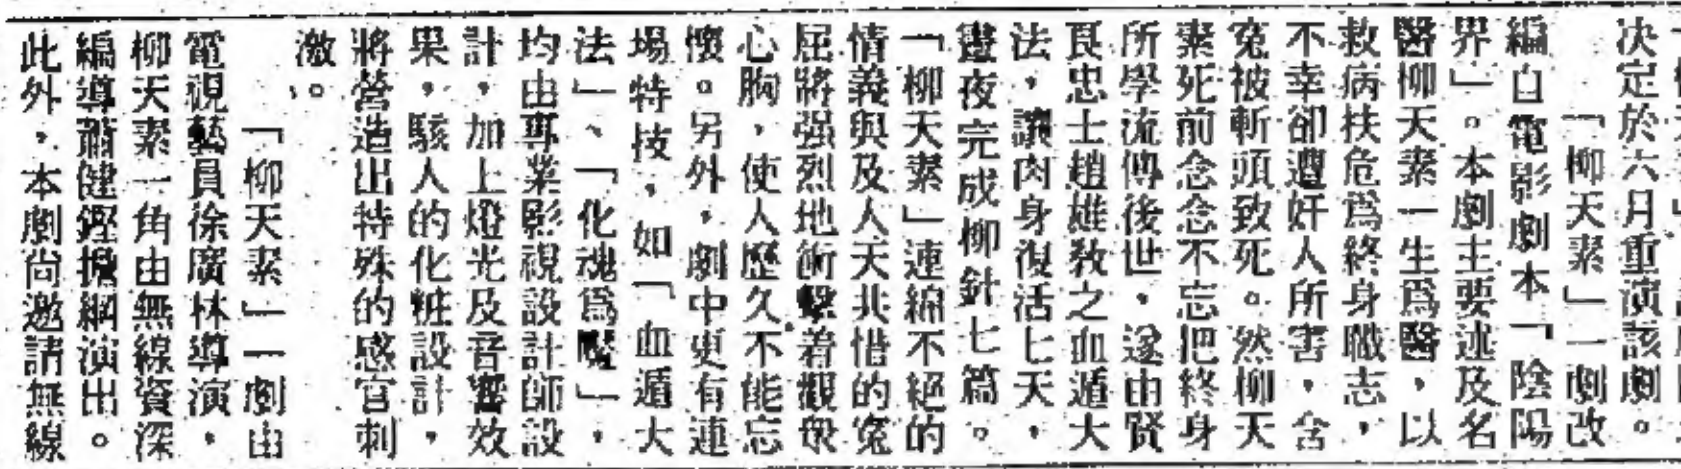 决定於六月重演該劇。
「柳天素」一劇改
編自電影劇本「陰陽
界」。本劇主要述及名
醫柳天素一生爲醫，以
救病扶危爲終身職志，
不幸卻遭奸人所害，含
冤被斬頭致死。然柳天
素死前念念不忘把終身
所學流傳後世，遂由賢
良忠士趙雄敎之血遁大
法，讓肉身復活七天，
晝夜完成柳針七篇。
「柳天素」連綿不絕的
情義與及人天共惜的寃
屈將强烈地衝擊着觀衆
心胸，使人歷久不能忘
懷。另外，劇中更有連
場特技，如「血遁大
法」、「化魂爲魘」，
均由專業影視設計師設
計，加上燈光及音響效
果，駭人的化粧設計，
將營造出特殊的感官刺
激。
「柳天素」一劇由
電視藝員徐廣林導演，
柳天素一角由無線資深
編導蕭健鏗擔綱演出。
此外，本劇尙邀請無線